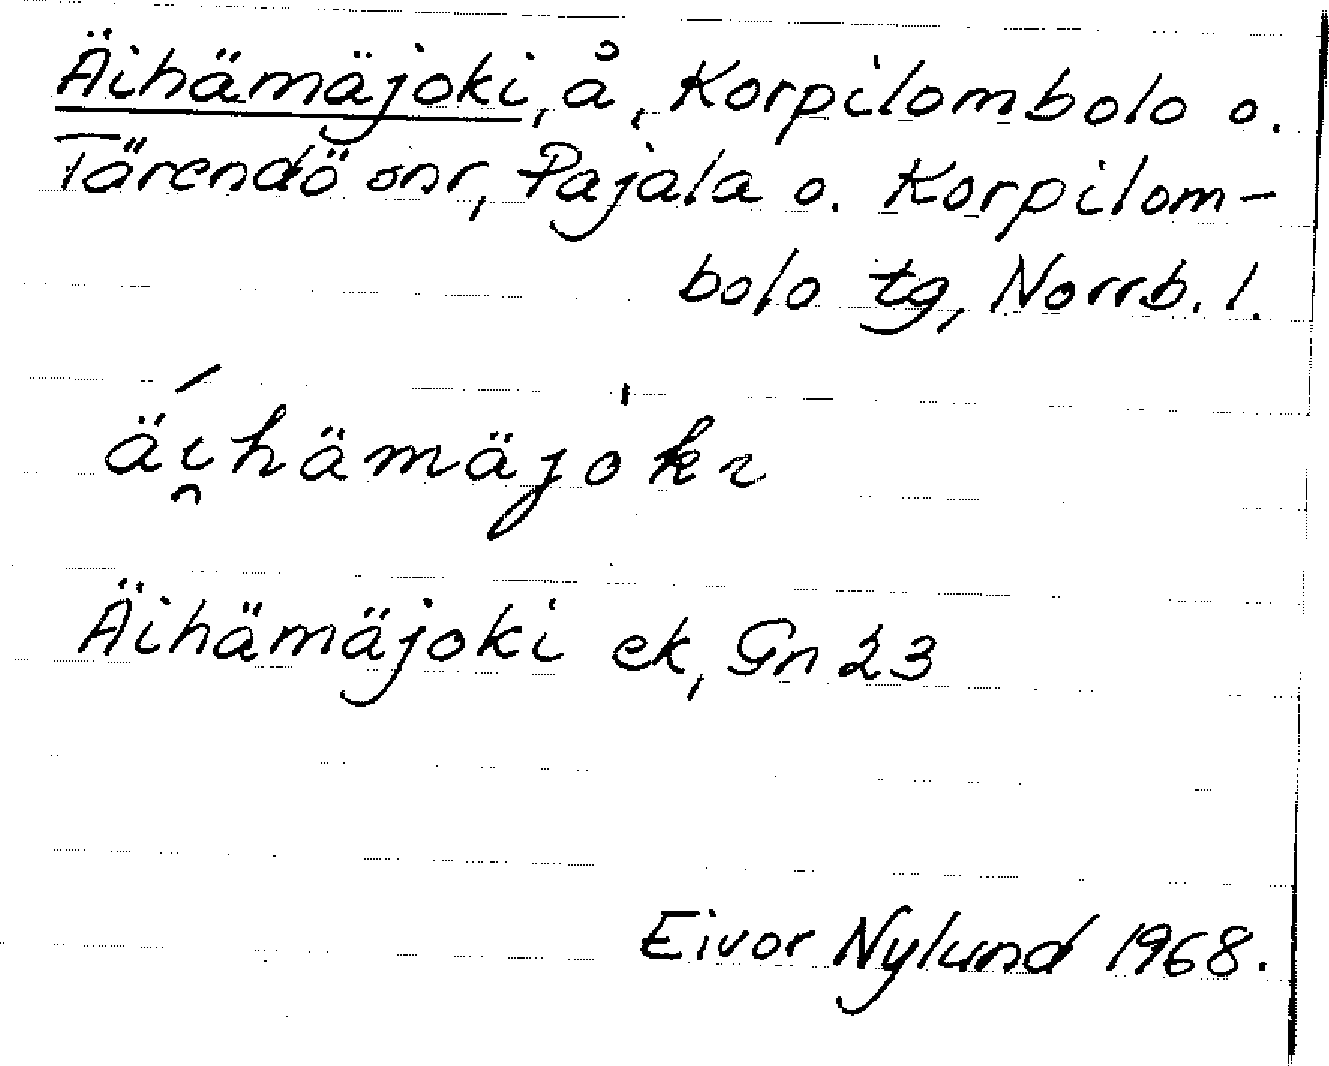 Äihämäjoki, å, Korpilombolo o.
Tärendö snr, Pajala o. Korpilom-
bolo tg, Norrb. l.
ä́i̯hämäjo̍kɩ
Äihämäjoki ek, Gn 23
Eivor Nylund 1968.